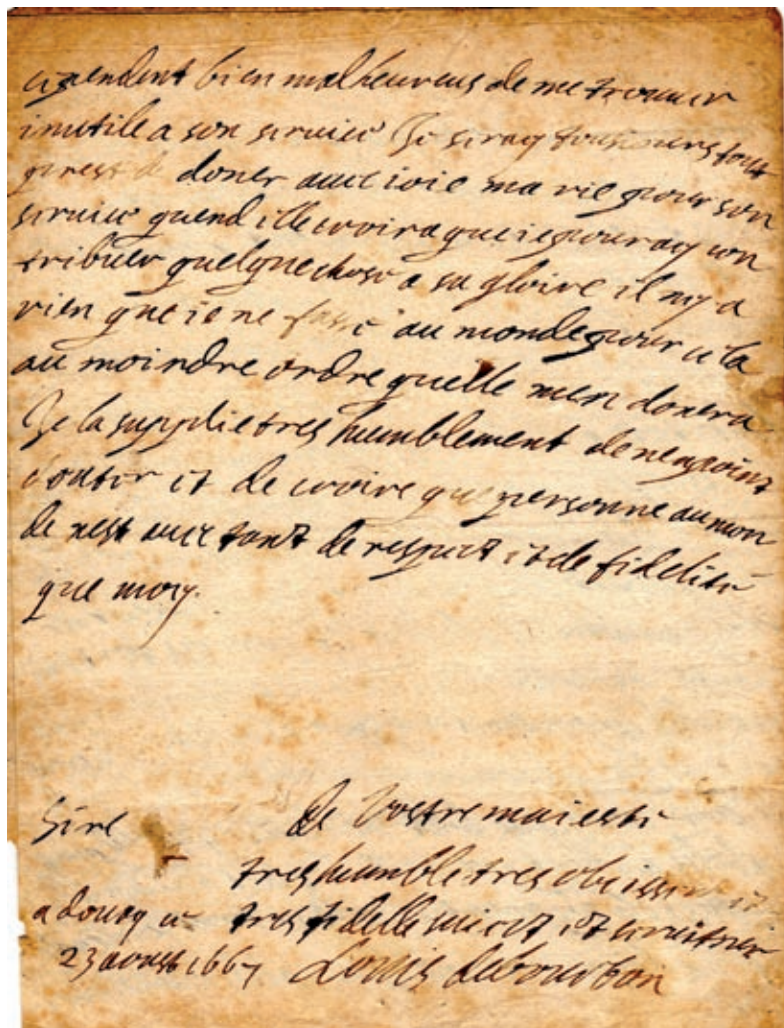 cependent bien malheureus de me trouuer
inutile a son seruice Je seray tousiours tout
prest de doner auec ioie ma vie pour son
seruice quend elle croira que ie pouray con
tribuer quelque chose a sa gloire il ny a
rien que ie ne fasse au monde pour cela
au moindre ordre quelle men donera
Je la supplie tres humblement de nen point
douter et de croire que personne au mon
de nest auec tant de respect et de fidelite
que moy.
Sire de Vostre maieste
tres humble tres obeissant et
a douay ce tres fidelle suiect et seruiteur
23 aoust 1667 Louis de bourbon